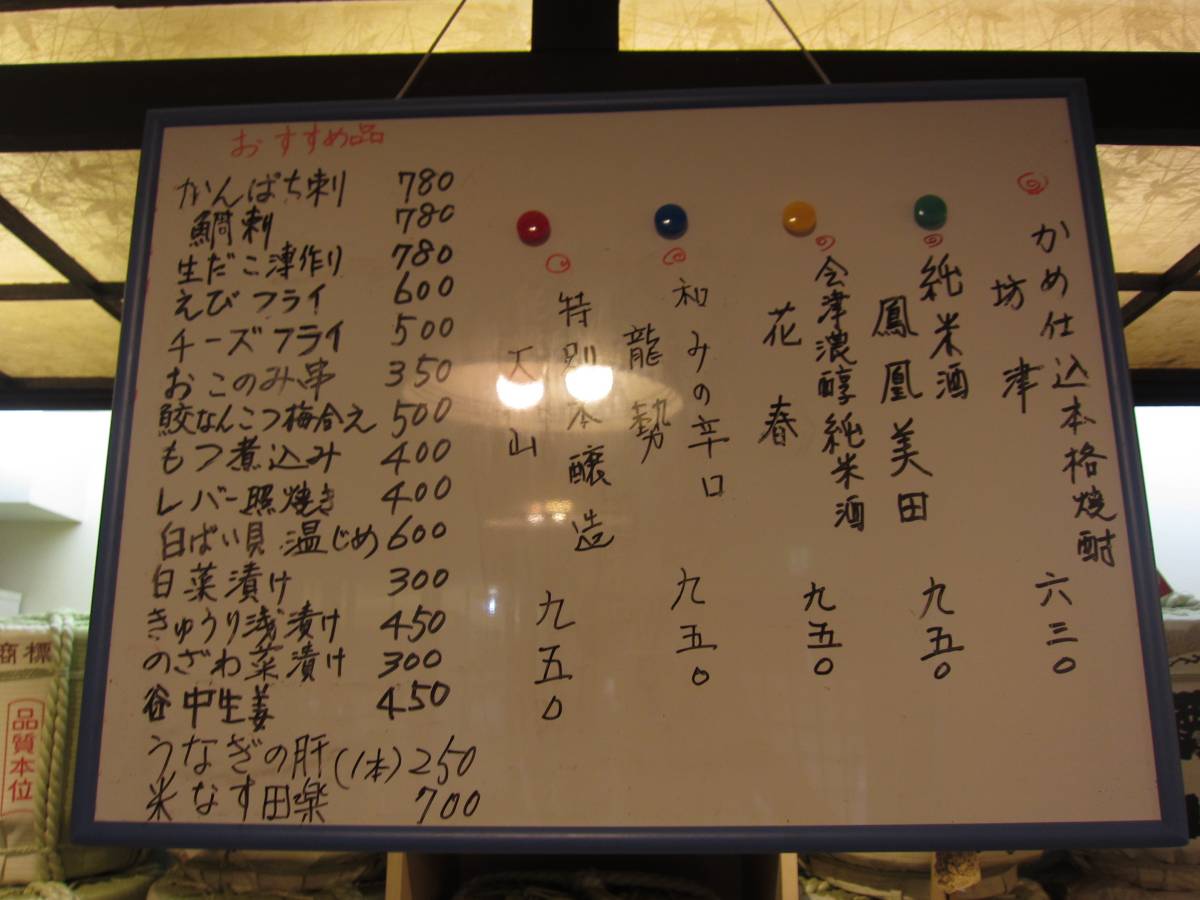 おすすめ品
かんぱち刺 780
鯛刺 780
生だこ薄作り 780
えびフライ 600
チーズフライ 500
おこのみ串 350
鮫なんこつ梅合え 500
もつ煮込み 400
レバー照焼き 400
白ばい貝 温じめ 600
白菜漬け 300
きゅうり浅漬け 450
のざわ菜漬け 300
谷中生姜 450
うなぎの肝(1本) 250
米なす田楽 700
かめ仕込本格焼酎
坊津 六三〇
純米酒
鳳凰美田 九五〇
会津濃醇純米酒
花春 九五〇
和みの辛口
龍勢 九五〇
特別本醸造
天山 九五〇
商標
品質本位